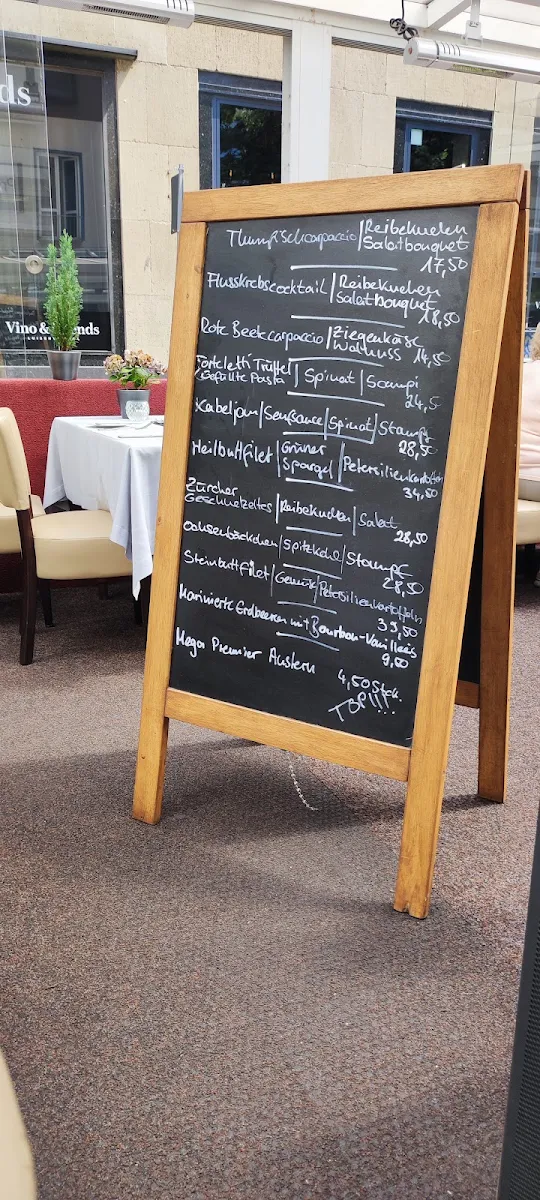 ds
Vino & Friends
Thunfischcarpaccio | Reibekuchen
Salatbouquet
17,50
Flusskrebscocktail | Reibekuchen
Salatbouquet
18,50
Rote Beetecarpaccio | Ziegenkäse
Walnuss 14,50
Tortelletti Trüffel | Spinat | Scampi
Gefüllte Pasta
24,5
Kabeljau | Senfsauce | Spinat | Stampf
28,50
Heilbuttfilet | Grüner
Spargel | Petersilienkartoffeln
34,50
Zürcher
Geschnetzeltes | Reibekuchen | Salat
28,50
Ochsenbäckchen | Spitzkohl | Stampf
28,50
Steinbuttfilet | Gemüse | Petersilienkartoffeln
39,50
Marinierte Erdbeeren mit Bourbon-Vanilleeis
9,50
Mega Premier Austern
4,50 Stck.
TOP!!!